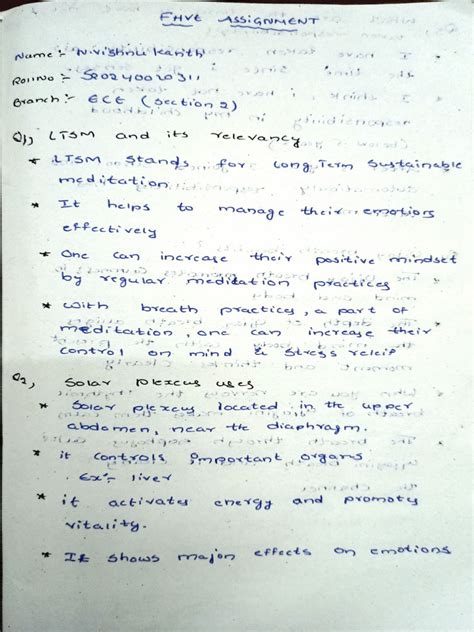 EHVE ASSIGNMENT
Name:- N.vishnu kanth
Rollno :-
Branch :- ECE (Section 2)
Q1, LTSM and its relevancy
* LTSM Stands for Long Term Sustainable
meditation
* It helps to manage their emotions
effectively
* One can increase their positive mindset
by regular meditation practices
* with breath practices, a part of
meditation, one can increase their
control on mind & stress releif
Q2, Solar plexcus uses
* Solar plexcus located in the upper
abdomen, near the diaphragm.
* it controls important organs
Ex:- liver
* it activates energy and promots
vitality.
* It shows major effects on emotions